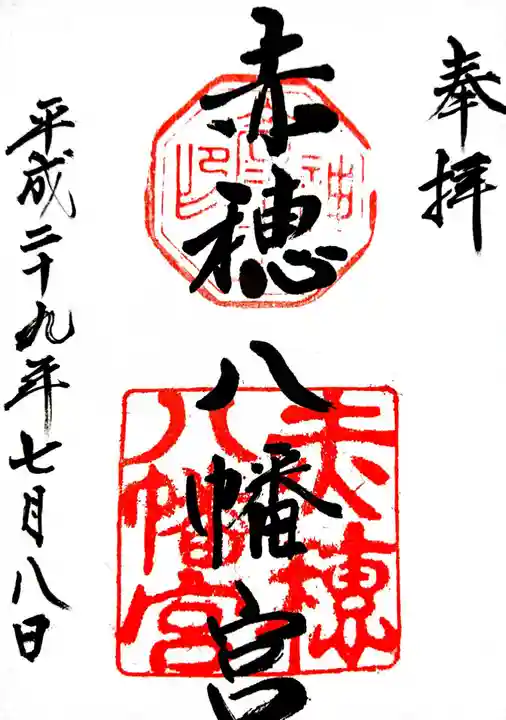 奉拝
赤穂八幡宮
赤穂
八幡宮
平成二十九年七月八日